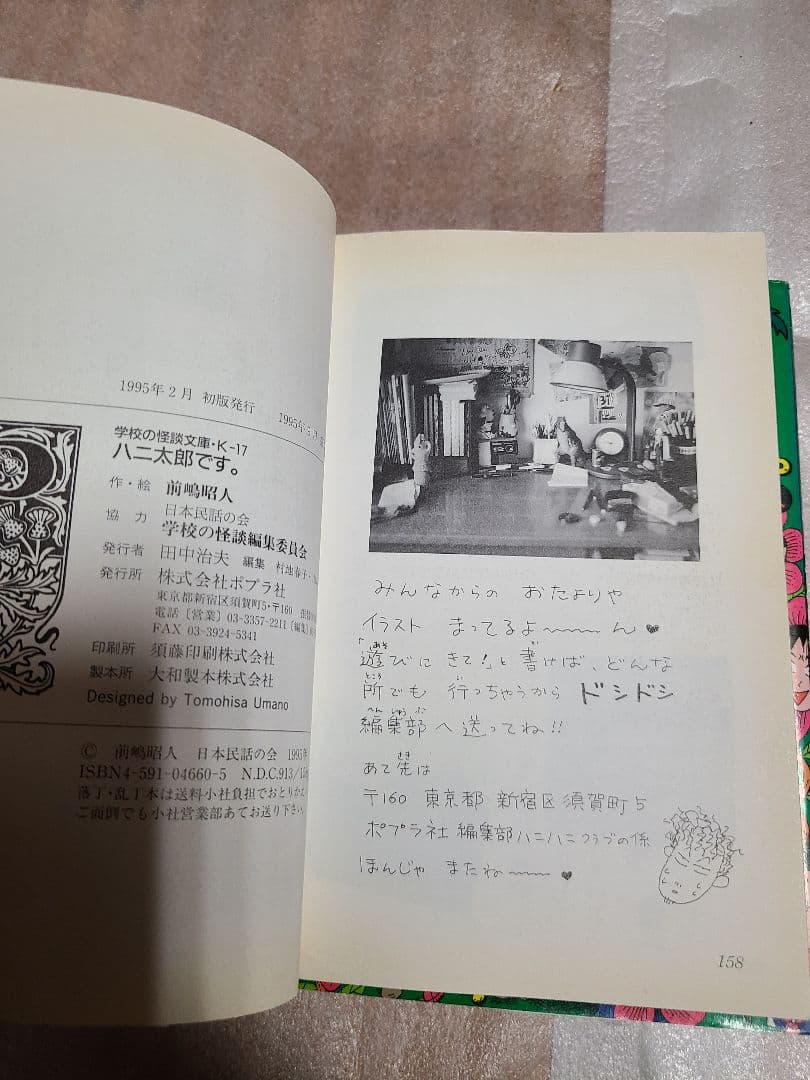 1995年2月 初版発行 1995年5月
学校の怪談文庫・K-17
ハニ太郎です。
作・絵 前嶋昭人
協力 日本民話の会
学校の怪談編集委員会
発行者 田中治夫 編集 村地春子・
発行所 株式会社ポプラ社
東京都新宿区須賀町5・〒160
電話〔営業〕03-3357-2211〔編集〕
FAX 03-3924-5341
印刷所 須藤印刷株式会社
製本所 大和製本株式会社
Designed by Tomohisa Umano
© 前嶋昭人 日本民話の会 1995年
ISBN4-591-04660-5 N.D.C.913
落丁・乱丁本は送料小社負担でおとりかえ
ご面倒でも小社営業部あてお送り下さい。
みんなからの おたよりや
イラスト まってるよ〜〜ん♥
「遊びにきて!」と書けば、どんな
所でも 行っちゃうから ドシドシ
編集部へ送ってね!!
あて先は
〒160 東京都 新宿区須賀町5
ポプラ社 編集部ハニハニクラブの係
ほんじゃ またね〜〜♥
158